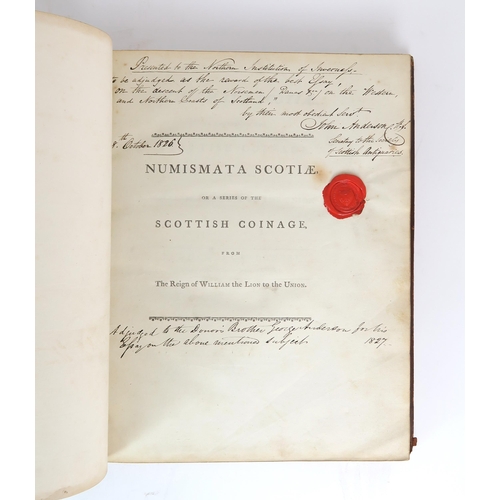 Presented to the Northern Institution of Inverness
to be adjudged as the reward of the best Essay
on the descent of the Norsemen (Danes &c) on the Western
and Northern Coasts of Scotland
by their most obedient Servt
John Anderson
Secretary to the
of Scottish Antiquaries
October 1826
NUMISMATA SCOTIÆ,
OR A SERIES OF THE
SCOTTISH COINAGE,
FROM
The Reign of WILLIAM the LION to the UNION.
Adjudged to the Donor's Brother George Anderson for his
Essay on the above mentioned subject. 1827.